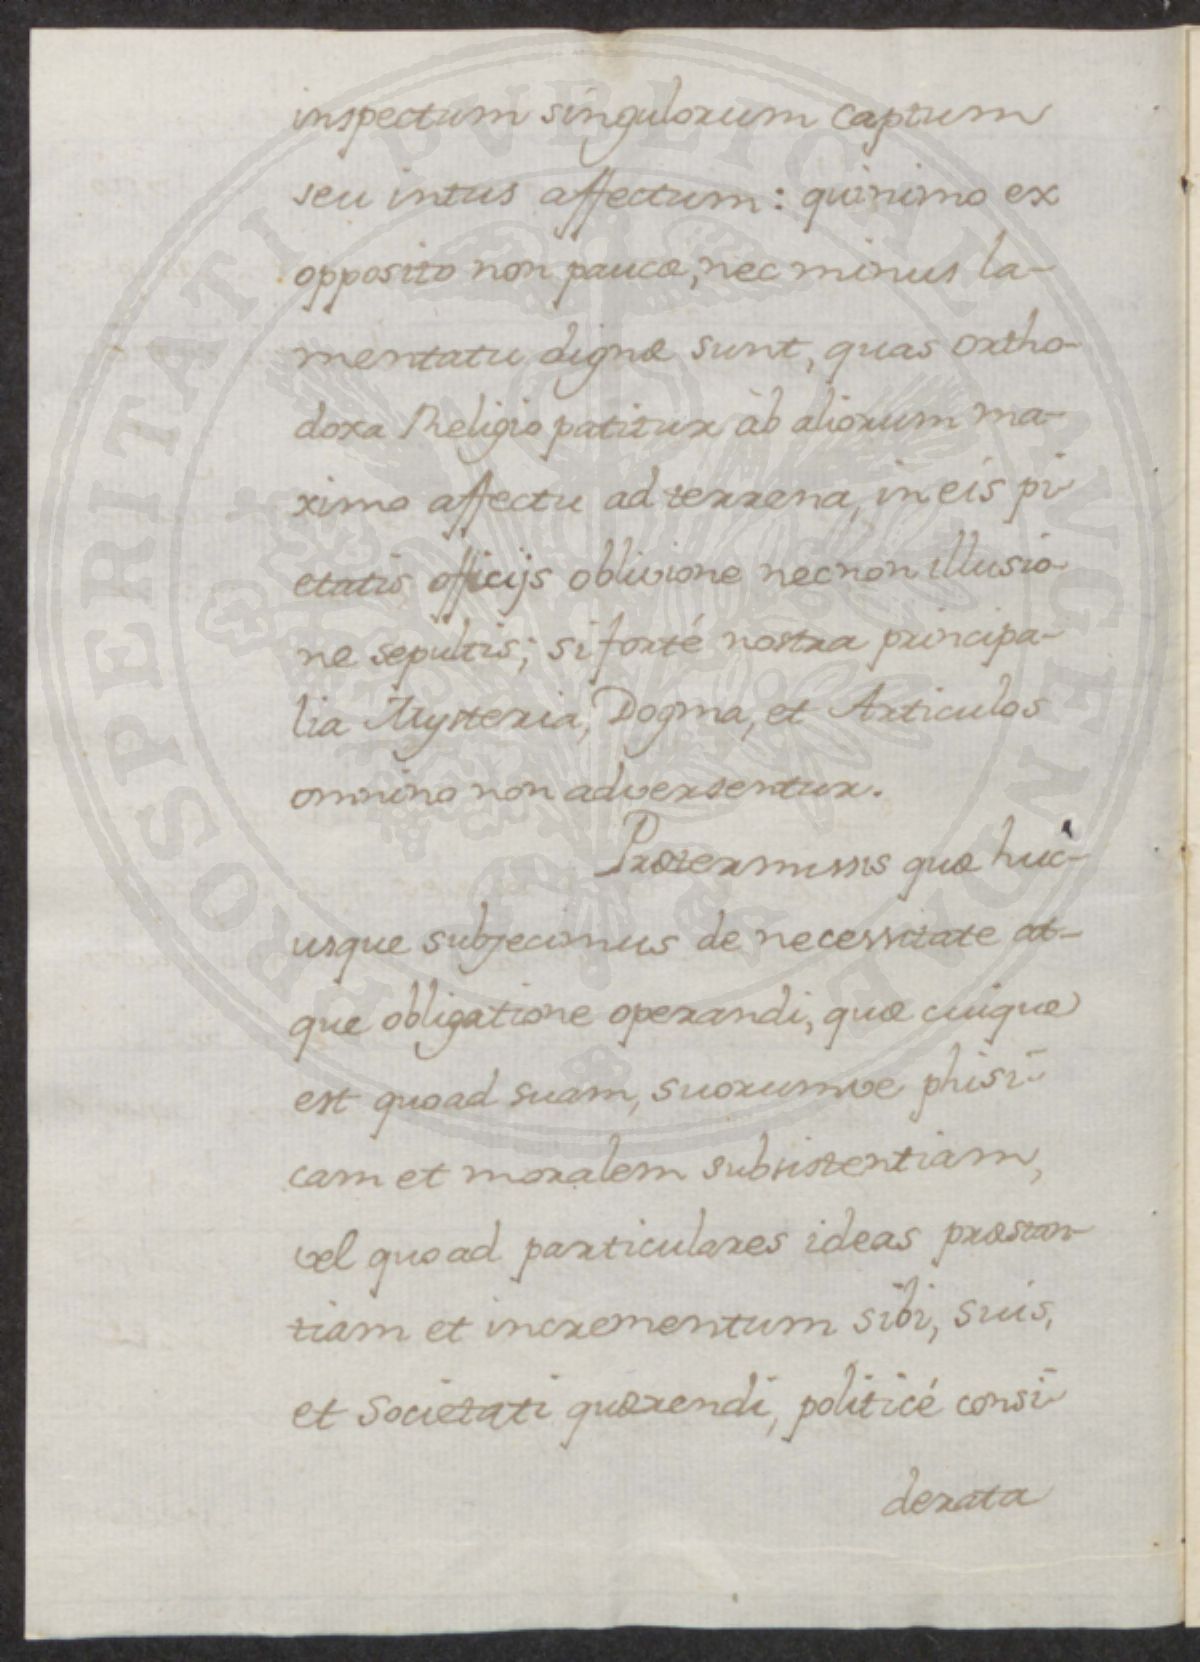 inspectum singulorum captum
seu intus affectum: quinimo ex
opposito non paucæ, nec minus la-
mentatu dignæ sunt, quas ortho-
doxa Religio patitur àb aliorum ma-
ximo affectu ad terrena, in eis pi-
etatis officijs oblivione necnon illusio-
ne sepultis; si forté nostra principa-
lia Mysteria, Dogma, et Articulos
omnino non adversentur.
Prætermissis quæ huc-
usque subjecimus de necessitate at-
que obligatione operandi, quæ cuique
est quoad suam, suorumve phisi-
cam et moralem subsistentiam,
vel quoad particulares ideas præstan-
tiam et incrementum sibi, suis,
et Societati quærendi, politicé consi-
derata
PROSPERITATI PVBLICAE AVGENDAE